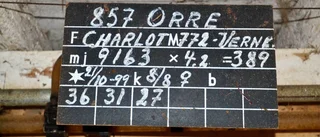 857 ORRE
F CHARLOT M 772-VERNE.
mj 9163 x 4.2 = 389
2/10-99 k 8/8 ♀ b
36 31 27